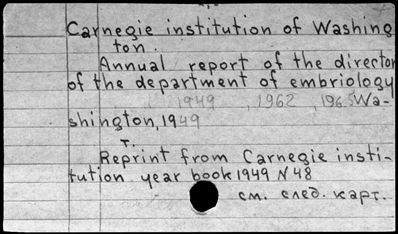 Carnegie institution of Washing
ton.
Annual report of the director
of the department of embriology
1949 , 1962 , 1965 Wa-
shington, 1949
т.
Reprint from Carnegie insti-
tution year book 1949 N 48
см. след. карт.